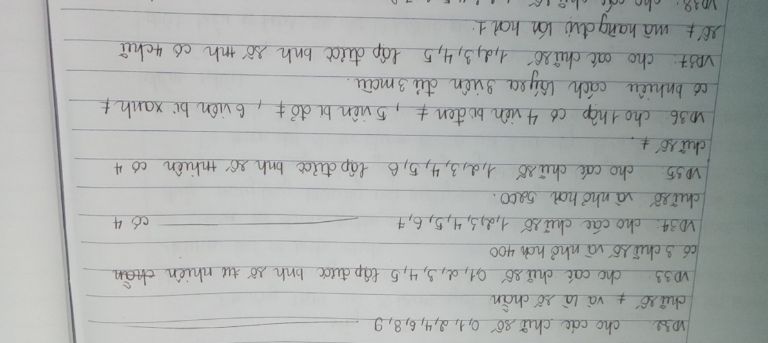 VD32 cho các chữ số 0,1,2,4,6,8,9
chữ số ≠ và là số chẵn
VD33. cho các chữ số 0,1,2,3,4,5 lập được bnh số tự nhiên chẵn
có 3 chữ số và nhỏ hơn 400
VD34. cho các chữ số 1,2,3,4,5,6,7 có 4
chữ số và nhỏ hơn 5200.
VD35. cho các chữ số 1,2,3,4,5,6 lập được bnh số tnhiên có 4
chữ số ≠.
VD36 cho 1 hộp có 4 viên bi đen ≠, 5 viên bi đỏ ≠, 6 viên bi xanh ≠
có bnhiêu cách lấy ra 3 viên đủ 3 màu.
VD37. cho các chữ số 1,2,3,4,5 lập được bnh số tnh có 4 chữ
số ≠ mà hàng đvị lớn hơn 1.
VD38. cho các chữ số